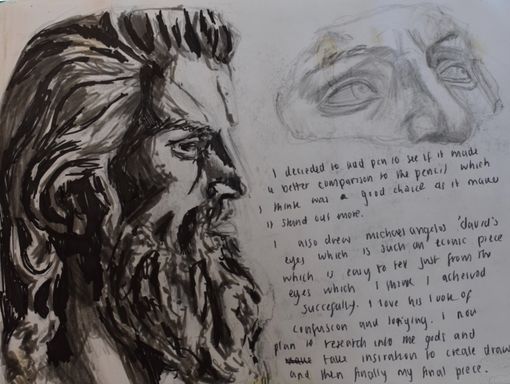 I decided to add pen to see if it made
a better comparison to the pencil which
I think was a good choice as it makes
it stand out more.
I also drew michaelangelos 'david's
eyes which is such an iconic piece
which is easy to tell just from the
eyes which I think I acheived
succefully. I love his look of
confusion and longing. I now
plan to research into the gods and
take insiration to create draw
and then finally my final piece.